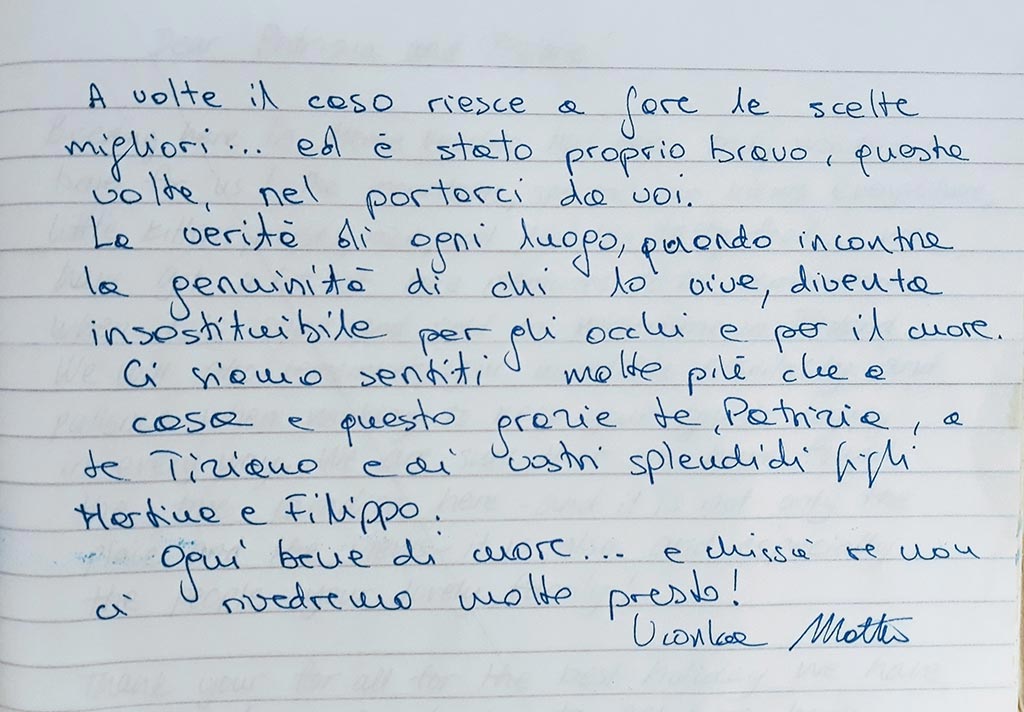 A volte il caso riesce a fare le scelte
migliori... ed è stato proprio bravo, questa
volta, nel portarci da voi.
La verità di ogni luogo, quando incontra
la genuinità di chi lo vive, diventa
insostituibile per gli occhi e per il cuore.
Ci siamo sentiti molto più che a
casa e questo grazie te, Patrizia, a
te Tiziano e ai vostri splendidi figli
Martina e Filippo.
Ogni bene di cuore... e chissà se non
ci rivedremo molto presto!
Matteo